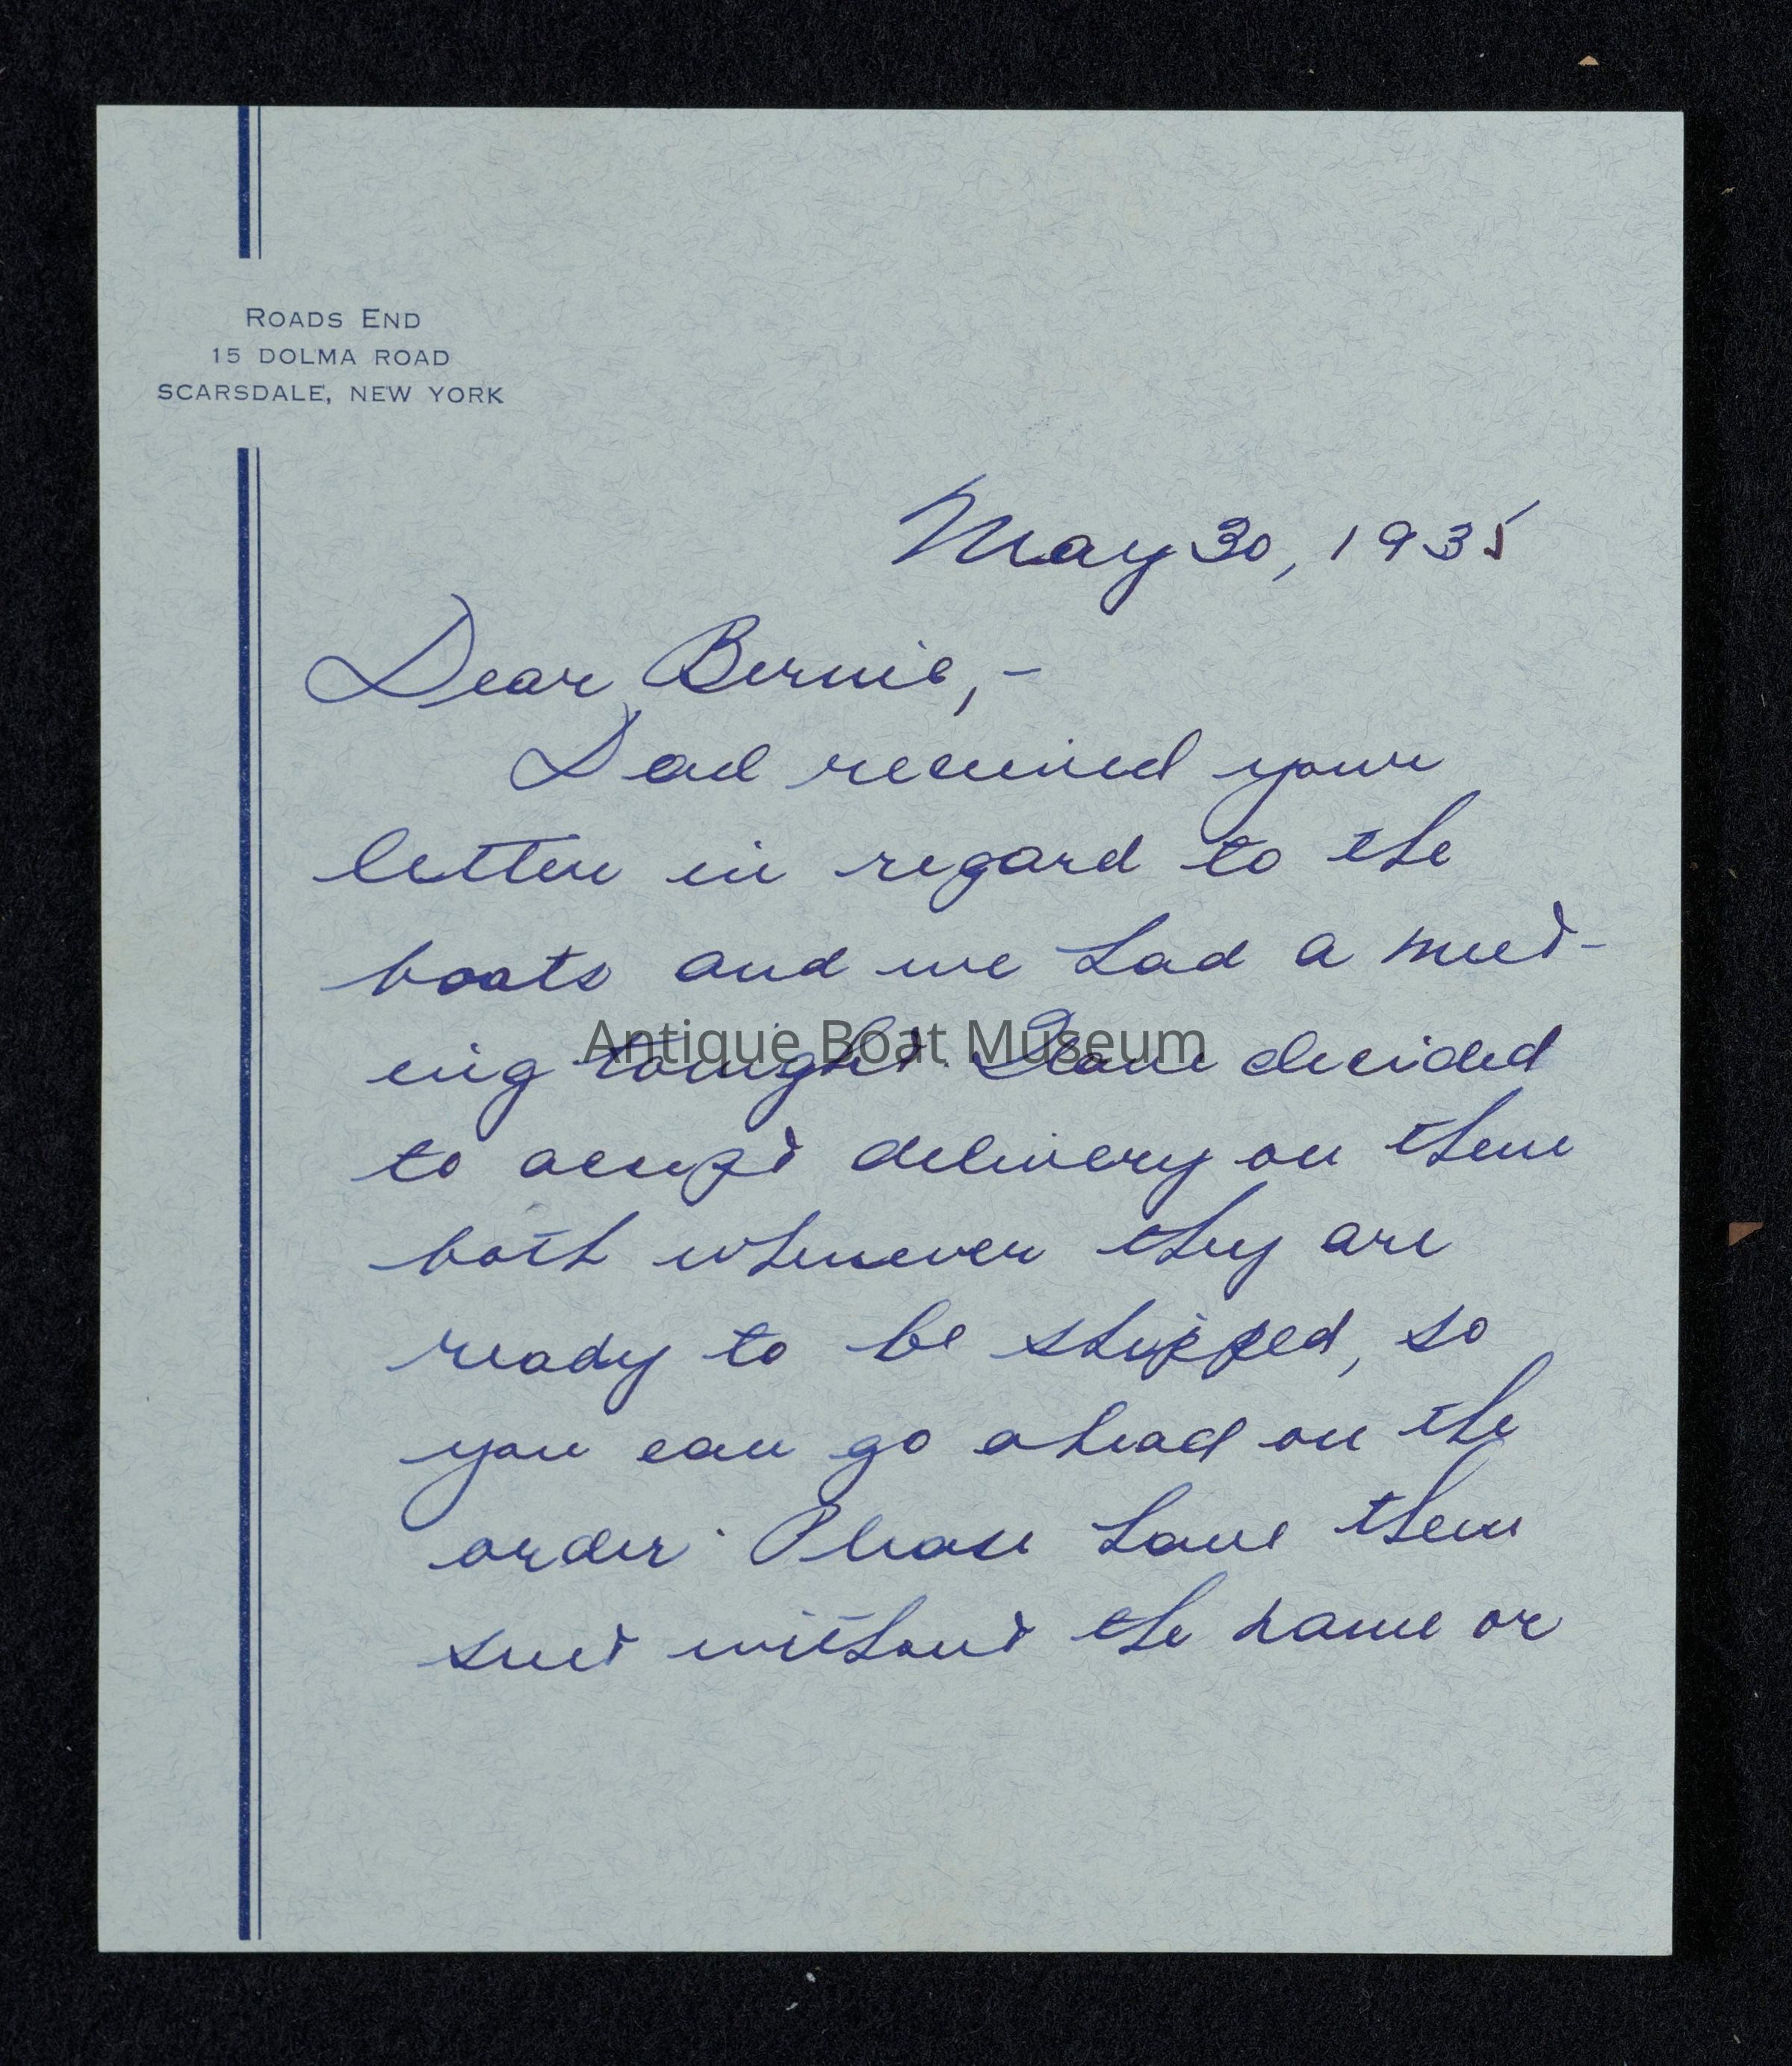 ROADS END
15 DOLMA ROAD
SCARSDALE, NEW YORK
May 30, 1935
Dear Bernie,-
Dad received your
letter in regard to the
boats and we had a meet-
ing tonight. Have decided
to accept delivery on them
both whenever they are
ready to be shipped, so
you can go ahead on the
order. Please have them
sent without the name or
Antique Boat Museum